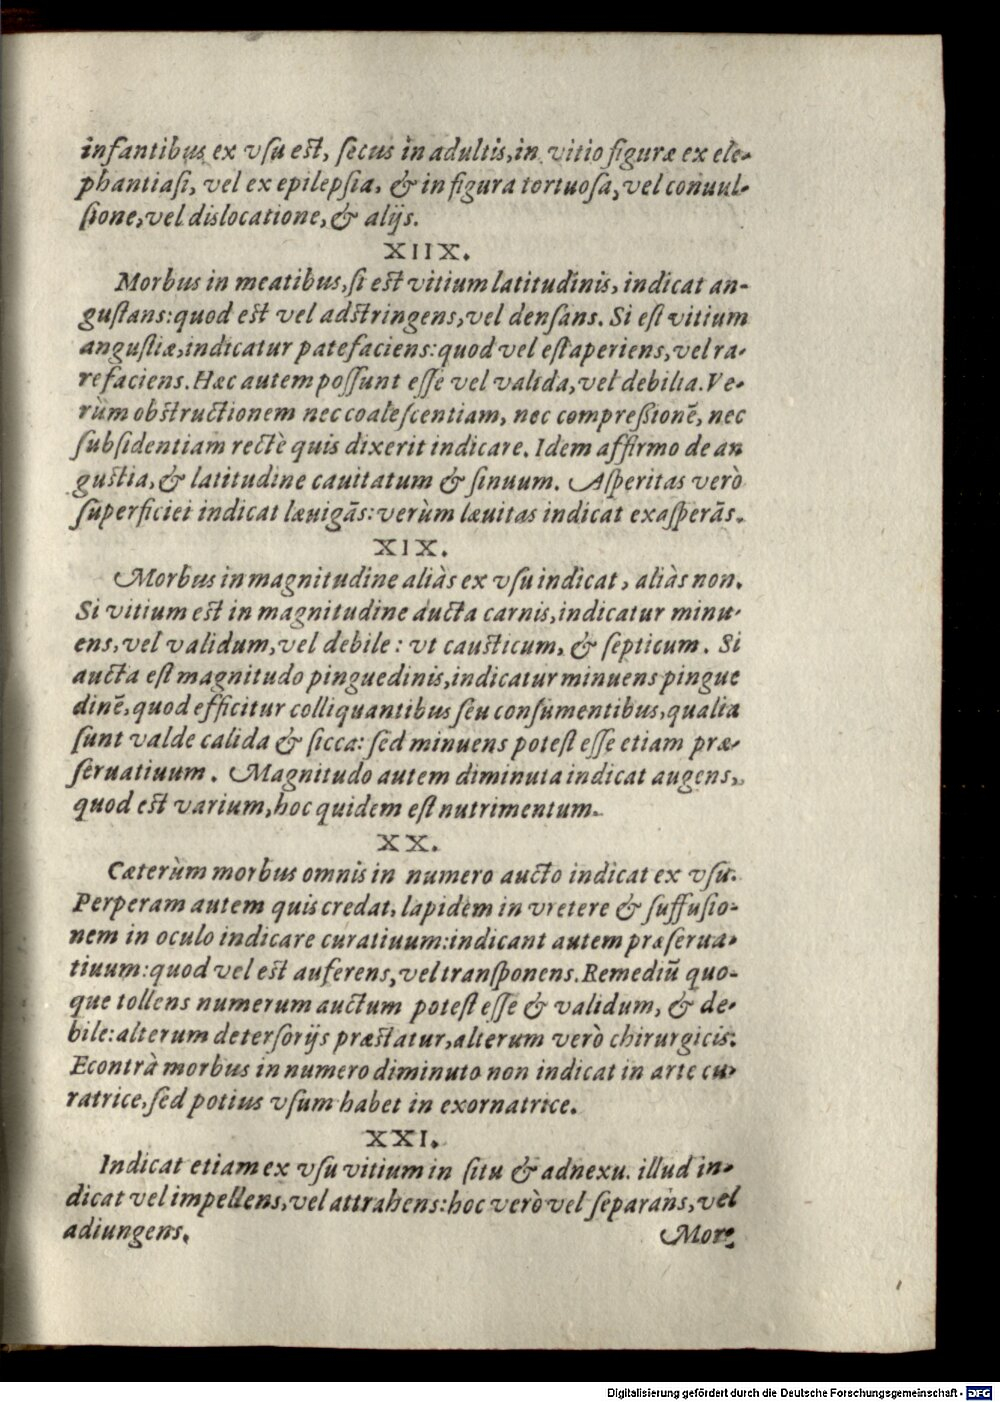 infantibus ex vsu est, secus in adultis, in vitio figuræ ex ele-
phantiasi, vel ex epilepsia, & in figura tortuosa, vel conuul-
sione, vel dislocatione, & alijs.
XIIX.
Morbus in meatibus, si est vitium latitudinis, indicat an-
gustans: quod est vel adstringens, vel densans. Si est vitium
angustiæ, indicatur patefaciens: quod vel est aperiens, vel ra-
refaciens. Hæc autem possunt esse vel valida, vel debilia. Ve-
rùm obstructionem nec coalescentiam, nec compreßionē, nec
subsidentiam rectè quis dixerit indicare. Idem affirmo de an
gustia, & latitudine cauitatum & sinuum. Asperitas verò
superficiei indicat læuigās: verùm læuitas indicat exasperās.
XIX.
Morbus in magnitudine aliàs ex vsu indicat, aliàs non.
Si vitium est in magnitudine aucta carnis, indicatur minu-
ens, vel validum, vel debile: vt causticum, & septicum. Si
aucta est magnitudo pinguedinis, indicatur minuens pingue
dinē, quod efficitur colliquantibus seu consumentibus, qualia
sunt valde calida & sicca: sed minuens potest esse etiam præ-
seruatiuum. Magnitudo autem diminuta indicat augens,
quod est varium, hoc quidem est nutrimentum.
XX.
Cæterùm morbus omnis in numero aucto indicat ex vsu.
Perperam autem quis credat, lapidem in vretere & suffusio-
nem in oculo indicare curatiuum: indicant autem præserua-
tiuum: quod vel est auferens, vel transponens. Remediū quo-
que tollens numerum auctum potest esse & validum, & de-
bile: alterum detersorijs præstatur, alterum verò chirurgicis.
Econtrà morbus in numero diminuto non indicat in arte cu-
ratrice, sed potius vsum habet in exornatrice.
XXI.
Indicat etiam ex vsu vitium in situ & adnexu. illud in-
dicat vel impellens, vel attrahens: hoc verò vel separans, vel
adiungens.
Mor-
Digitalisierung gefördert durch die Deutsche Forschungsgemeinschaft - DFG